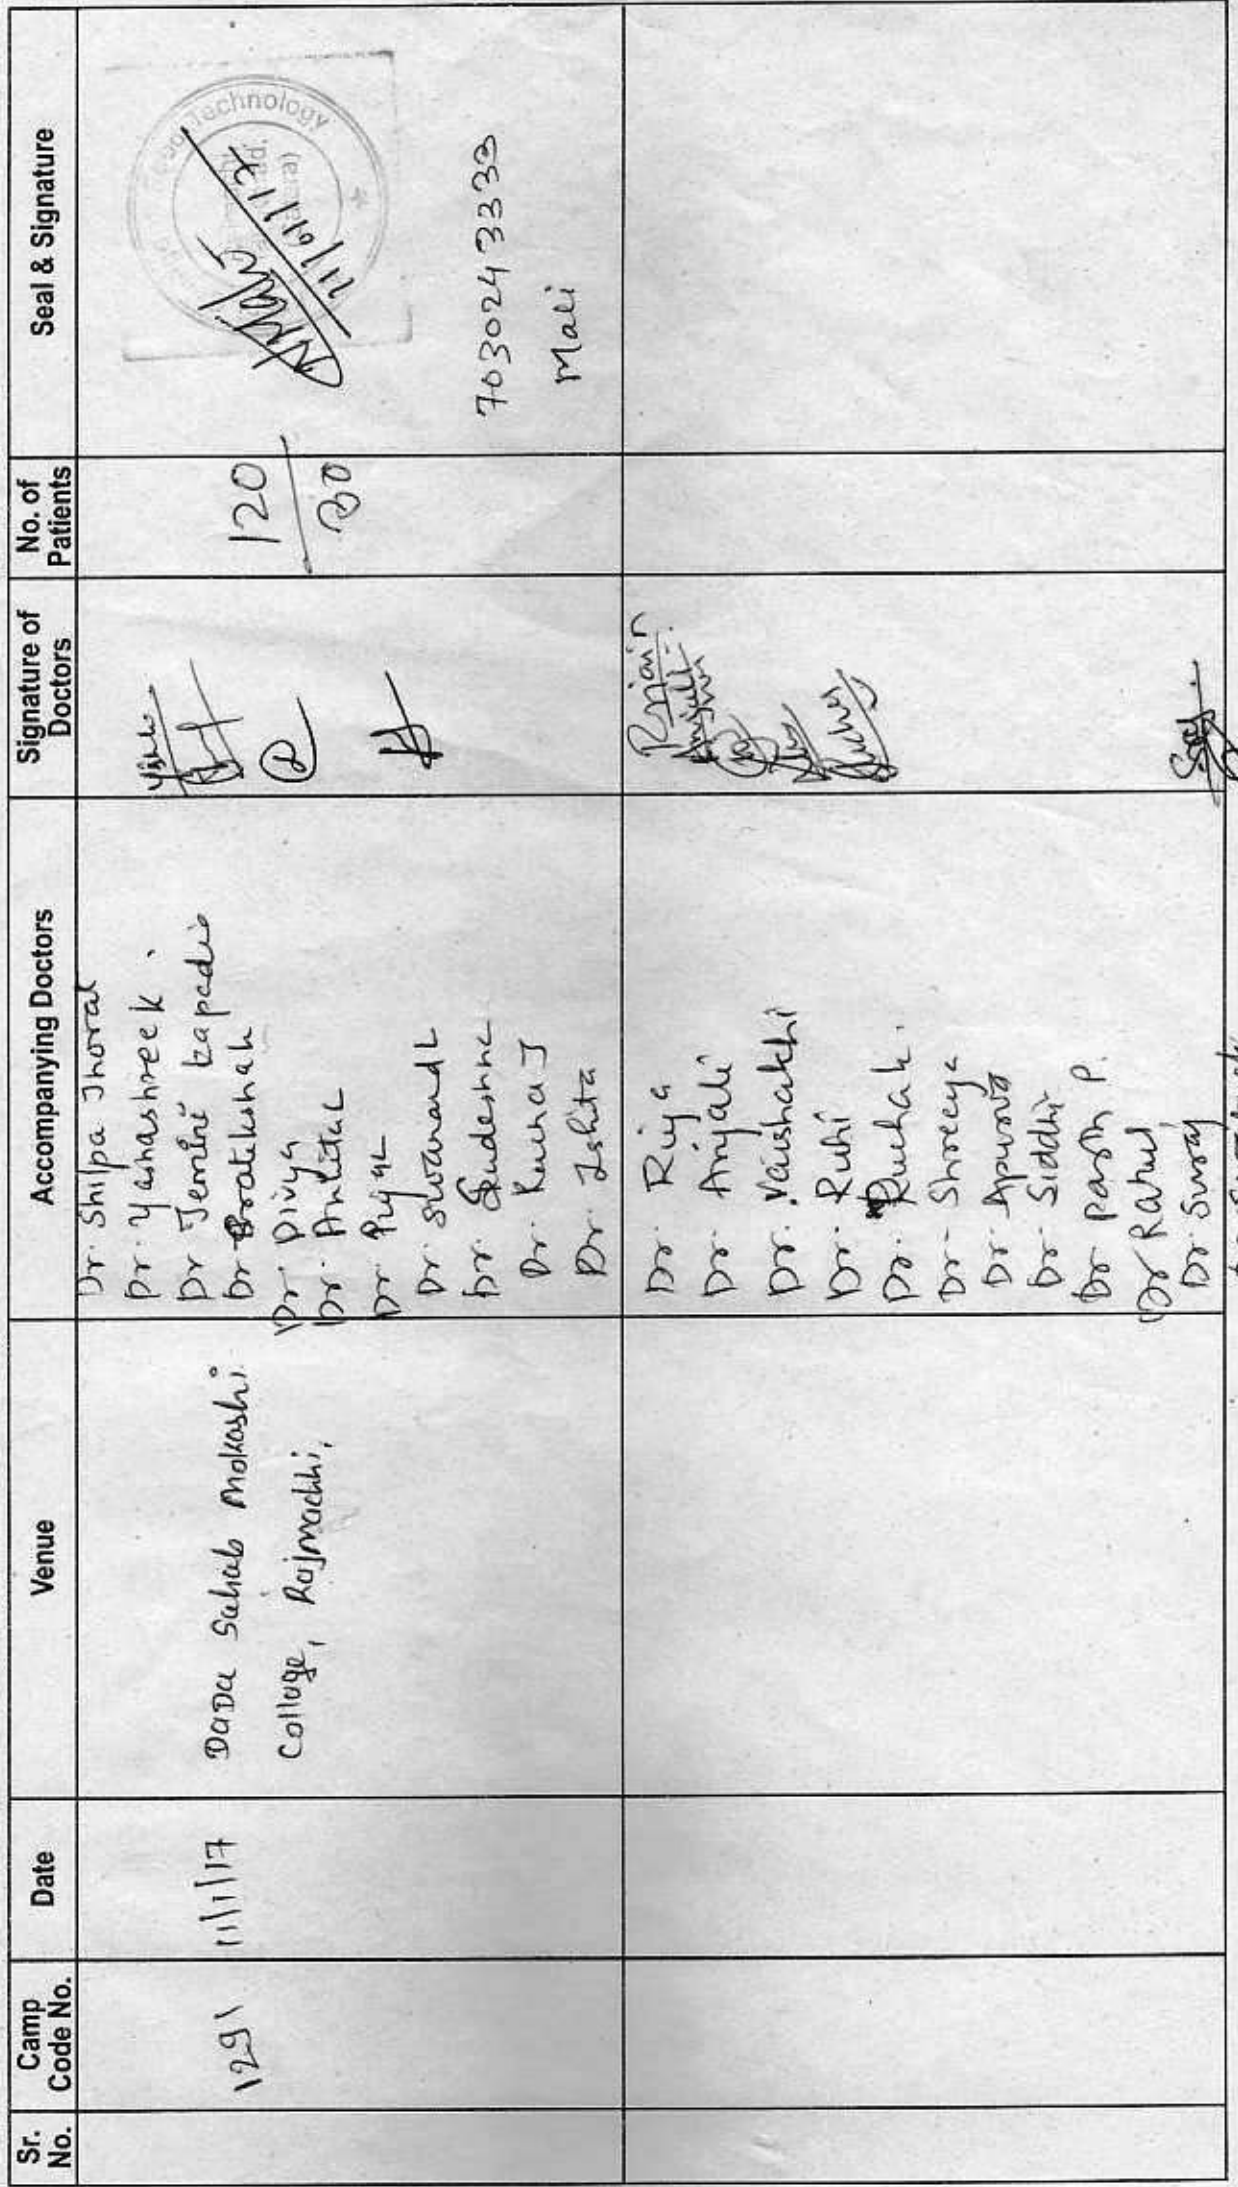 Sr. No.
Camp Code No.
Date
Venue
Accompanying Doctors
Signature of Doctors
No. of Patients
Seal & Signature
1291
11/1/17
DaDa Sahab Mokashi
College, Rajmachhi,
Dr. Shilpa Thorat
Dr. Yashashree K.
Dr Jemini kapadia
Dr Pratikshak
Dr. Divya
Dr.
Dr.
Dr. Swanand L
Dr. Sudeshna
Dr. Kunal J
Dr. Ishita
120
30
Technology
11/01/17
7030243333
Mali
Dr. Riya
Dr. Anjali
Dr. Vaishakhi
Dr. Ruhi
Dr. Ruhak.
Dr. Shreeya
Dr. Apurva
Dr. Siddhi
Dr Parth P.
Dr Rahul
Dr. Suraj
R Jain
Anjali